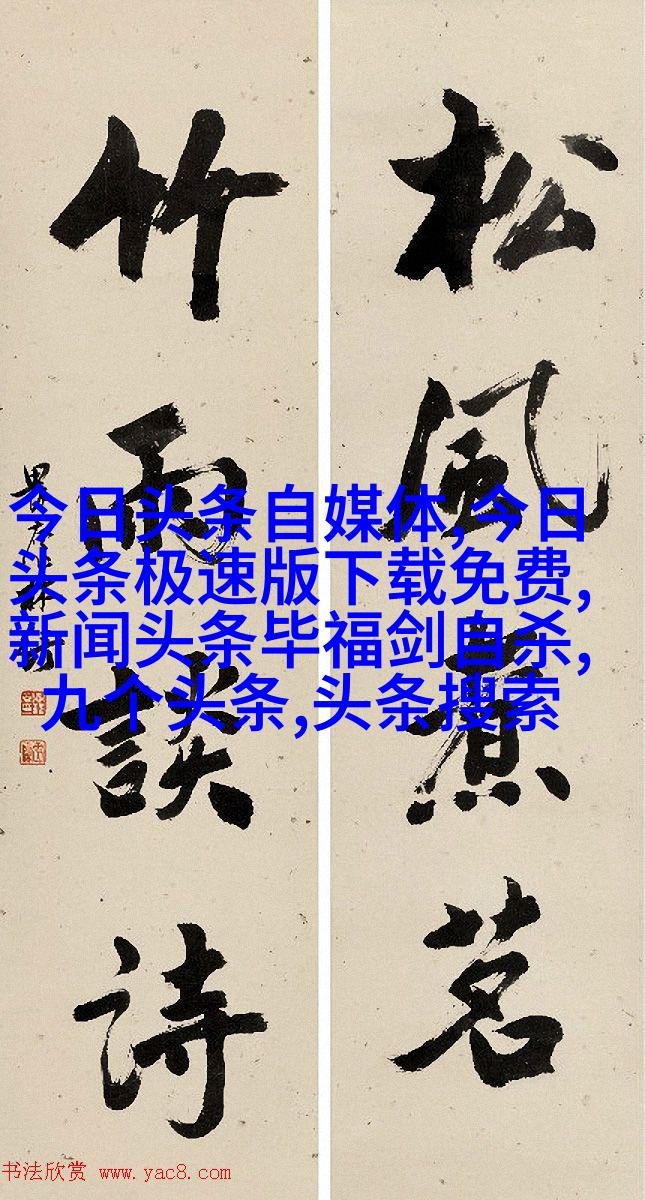 松風煮茗
竹雨談詩
今日头条自媒体,今日
头条极速版下载免费,
新闻头条毕福剑自杀,
九个头条,头条搜索
书法欣赏 www.yac8.com